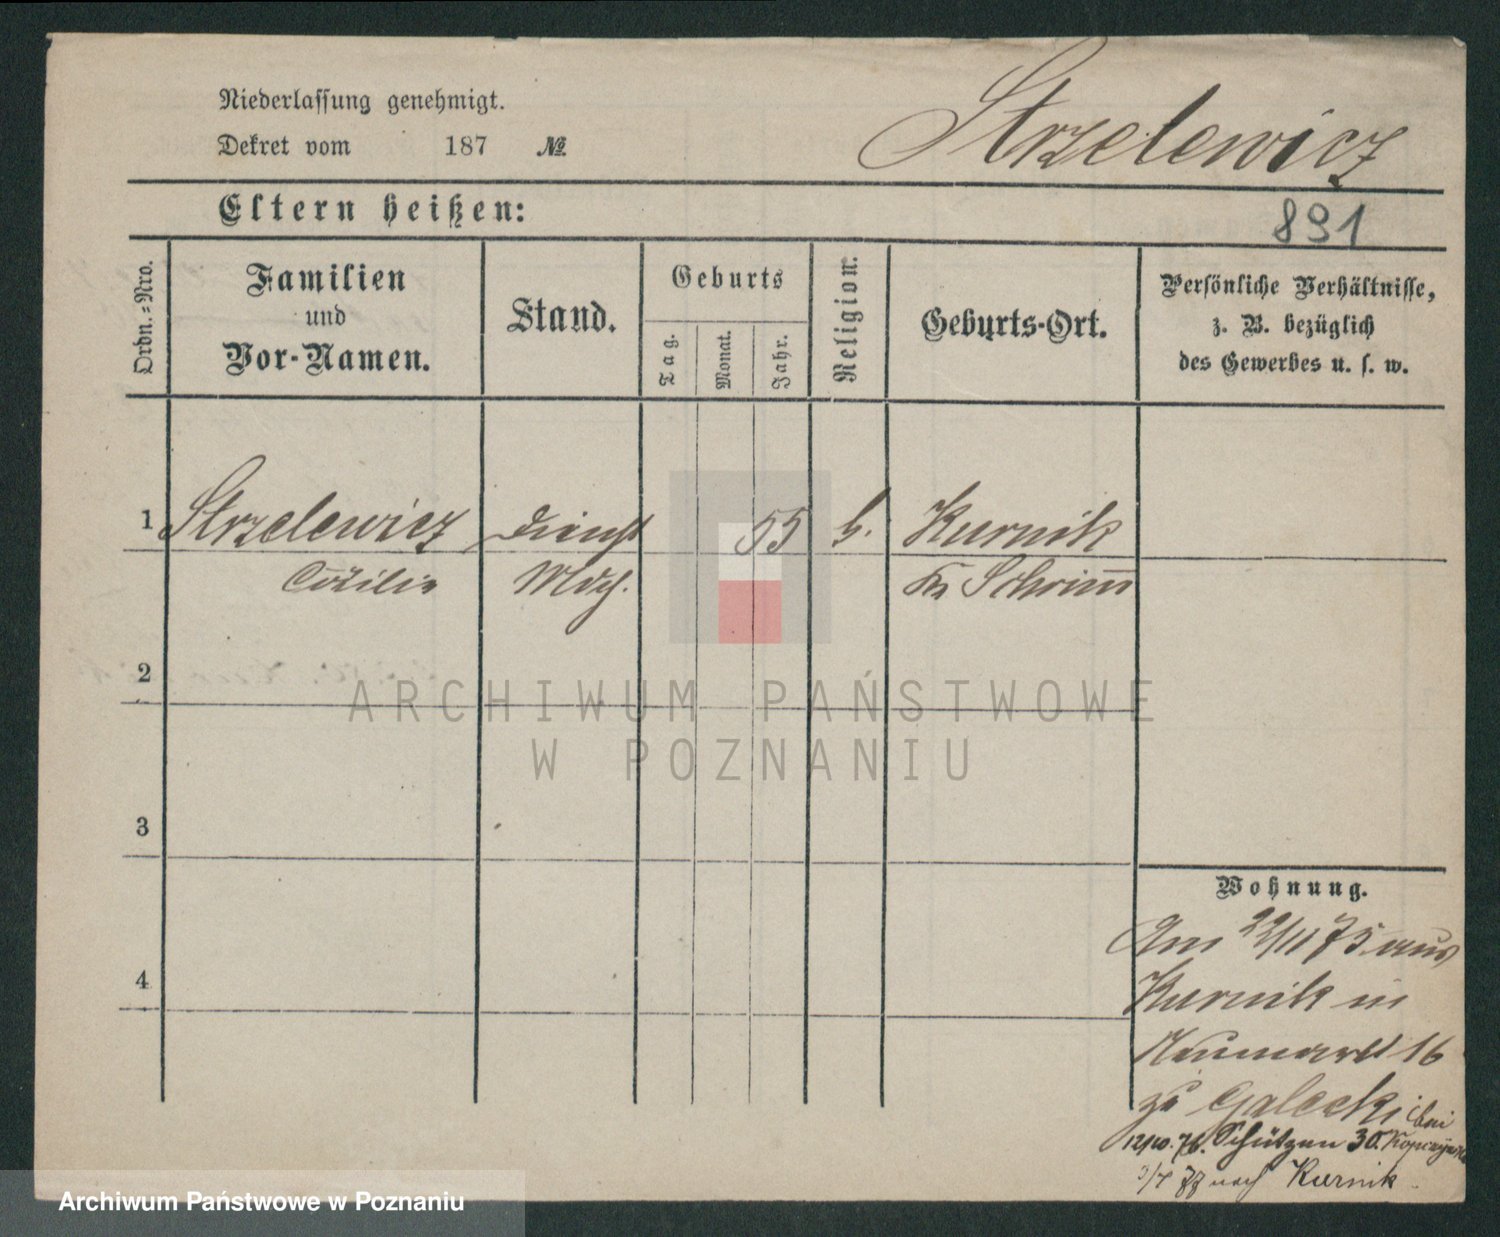 Niederlassung genehmigt.
Dekret vom 187 №
Strzelewicz
Eltern heißen:
891
Ordn.-Nro.
Familien
und
Vor-Namen.
Stand.
Geburts
Tag.
Monat.
Jahr.
Religion.
Geburts-Ort.
Persönliche Verhältnisse,
z. B. bezüglich
des Gewerbes u. s. w.
1 Strzelewicz Dienst 55 k. Kurnik
Cäzilie Mdch. Kr Schrimm
2
3
4
Wohnung.
Am 22/11 75 aus
Kurnik in
Neumarkt 16
zu Galecki
12/10. 76. Schützen 30. bei
7 77 nach Kurnik.
ARCHIWUM PAŃSTWOWE
W POZNANIU
Archiwum Państwowe w Poznaniu